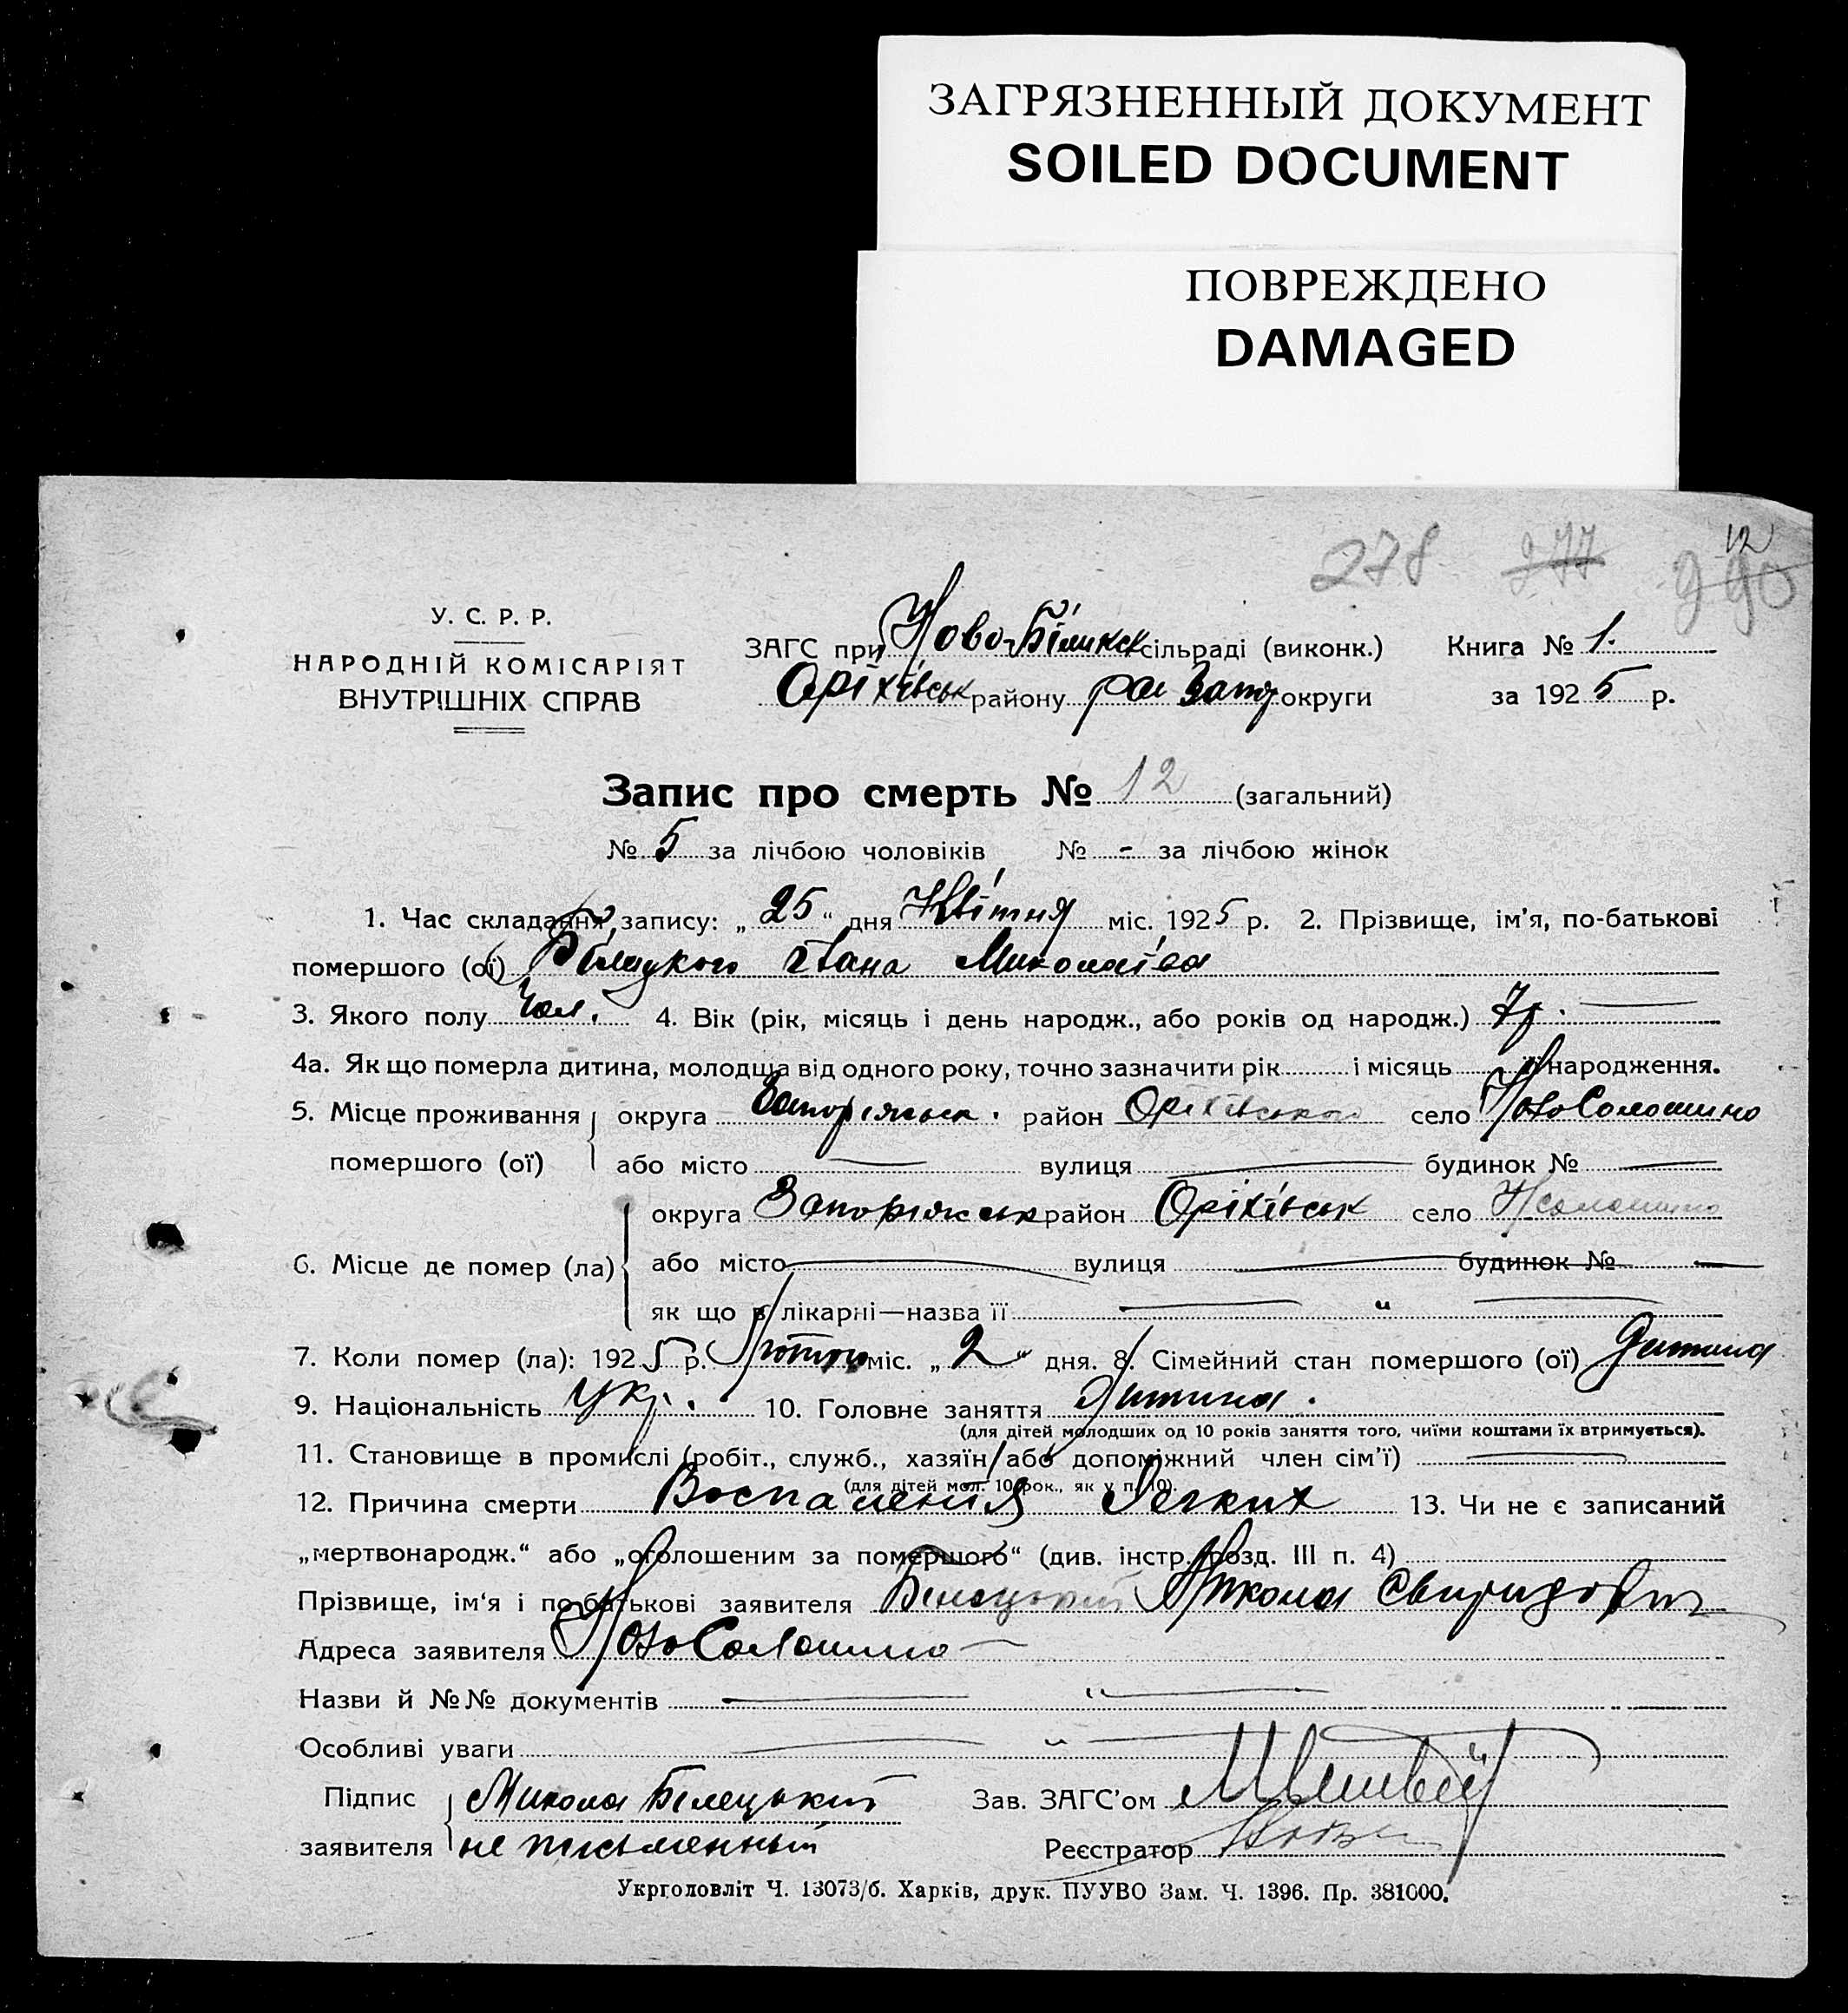 ЗАГРЯЗНЕННЫЙ ДОКУМЕНТ
SOILED DOCUMENT
ПОВРЕЖДЕНО
DAMAGED
278 277 990 12
У. С. Р. Р.
НАРОДНІЙ КОМІСАРІЯТ
ВНУТРІШНІХ СПРАВ
ЗАГС при Ново-Біликск сільраді (виконк.) Книга № 1.
Оріхівськ району Запор округи за 1925 р.
Запис про смерть № 12 (загальний)
№ 5 за лічбою чоловіків № - за лічбою жінок
1. Час складання запису: „25“ дня Квітня міс. 1925 р. 2. Прізвище, ім’я, по-батькові
помершого (ої) Білецкого Івана Миколаіва
3. Якого полу Чол. 4. Вік (рік, місяць і день народж., або років од народж.) 7 р.
4а. Як що померла дитина, молодща від одного року, точно зазначити рік і місяць її народження.
5. Місце проживання помершого (ої) округа Запоріжськ. район Оріхівського село НовоСолошино
або місто — вулиця — будинок № —
6. Місце де помер (ла) округа Запоріжськ район Оріхівськ село НСолошино
або місто — вулиця — будинок № —
як що в лікарні—назва її — „ —
7. Коли помер (ла): 1925 р. Лютого міс. „2“ дня. 8. Сімейний стан помершого (ої) Дитина
9. Національність Укр. 10. Головне заняття Дитина.
(для дітей молодших од 10 років заняття того, чиїми коштами їх втримується).
11. Становище в промислі (робіт., служб., хазяїн або допоміжний член сім’ї) —
(для дітей мол. 10 рок., як у п. 10).
12. Причина смерти Воспаления Легких 13. Чи не є записаний
„мертвонародж.“ або „оголошеним за помершого“ (див. інстр. розд. III п. 4)
Прізвище, ім‘я і по-батькові заявителя Білецький Микола Свиридович
Адреса заявителя НовоСолошино —
Назви й №№ документів — „ —
Особливі уваги — „ —
Підпис заявителя Микола Білецький
не письменный
Зав. ЗАГС’ом
Реєстратор
Укрголовліт Ч. 13073/б. Харків, друк. ПУУВО Зам. Ч. 1396. Пр. 381000.